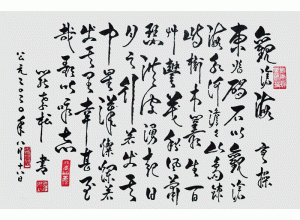 觀滄海 曹操
東临碣石以觀滄
海水何澹澹山岛
峙樹木叢生百
艸豐茂秋風蕭
瑟洪波湧起日
月之行若出其
中星漢燦爛若
出其里幸甚至
哉歌以咏志
公元二〇二〇年八月十八日
書